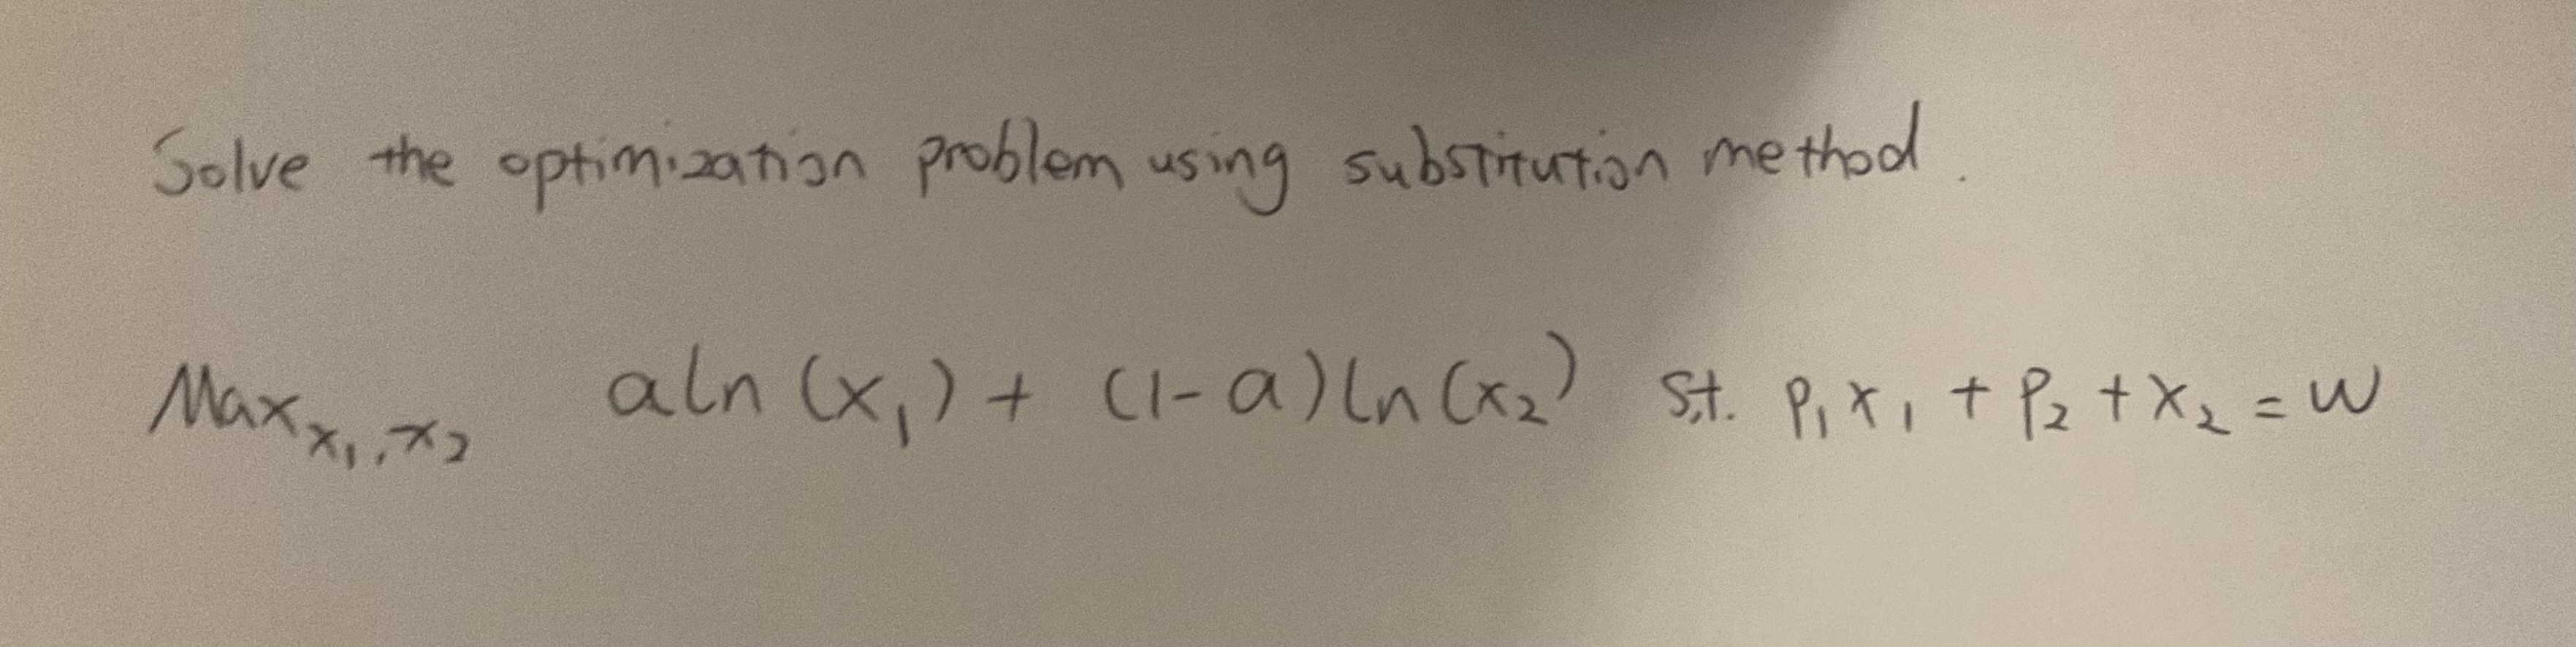 Solve the optimization problem using substitution method.
Max x₁,x₂ aln(x₁) + (1-a)ln(x₂) s.t. p₁x₁ + p₂ + x₂ = w